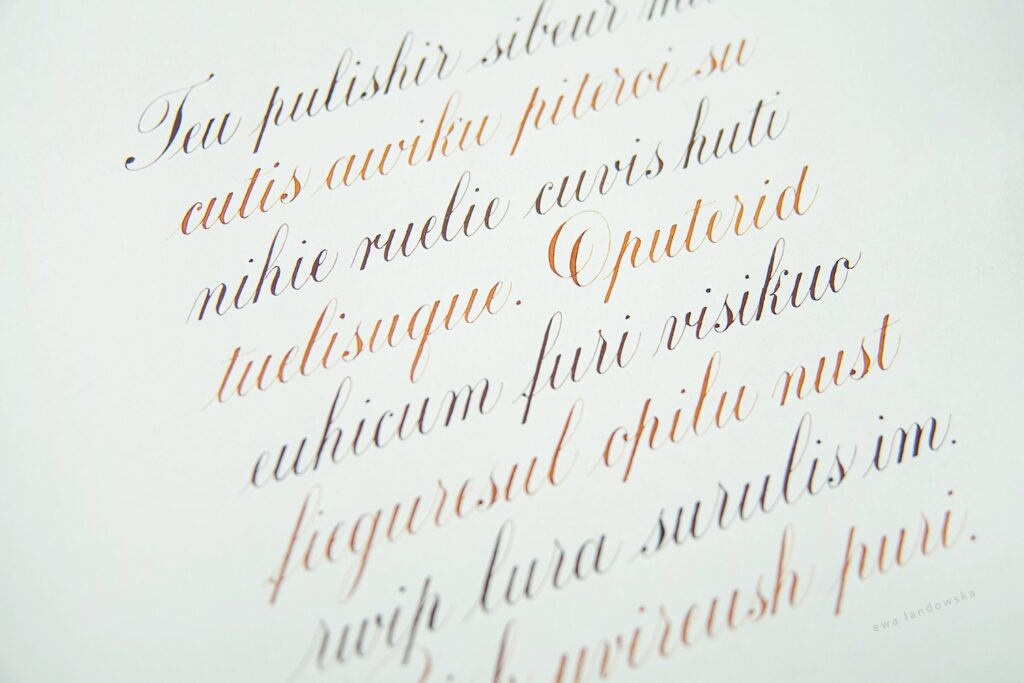 Teu pulishir sibeur
cutis awiku piteroi su
nihie ruelie cuvis huti
tuelisuque. Oputerid
euhicum furi visikuo
fieguresul opilu nust
rwip lura surulis im.
uvireush puri.
ewa landowska